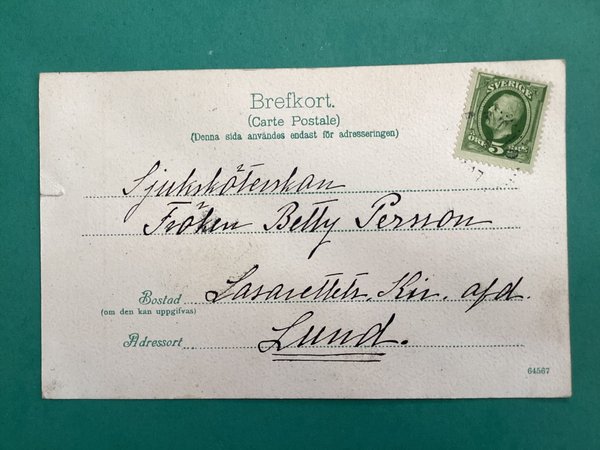 SVERIGE
5 ÖRE
Brefkort.
(Carte Postale)
(Denna sida användes endast för adresseringen)
Sjuksköterskan
Fröken Betty Persson
Bostad Lasarettets Kir. afd.
(om den kan uppgifvas)
Adressort Lund.
64567